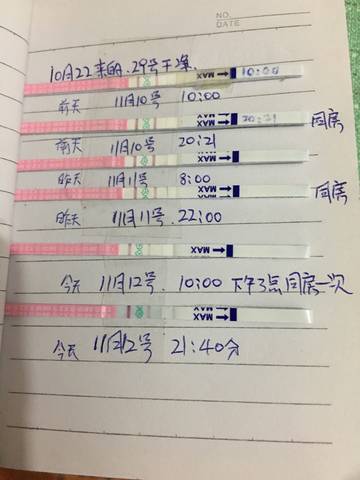 NO.
DATE
10月22来的.29号干净.
MAX 10:00
前天 11月10号 10:00
MAX 20:21 同房
前天 11月10号 20:21
MAX
昨天 11月11号 8:00
MAX 同房
昨天 11月11号.22:00
MAX
今天 11月12号.10:00 下午3点同房一次
MAX
今天 11月12号 21:40分